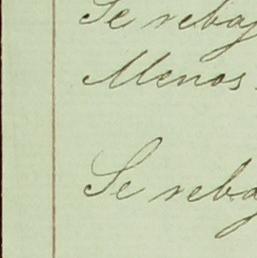 Se rebaj
Menos
Se reba